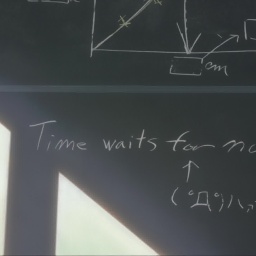 cm
Time waits for no
(゚Д゚)ハァ